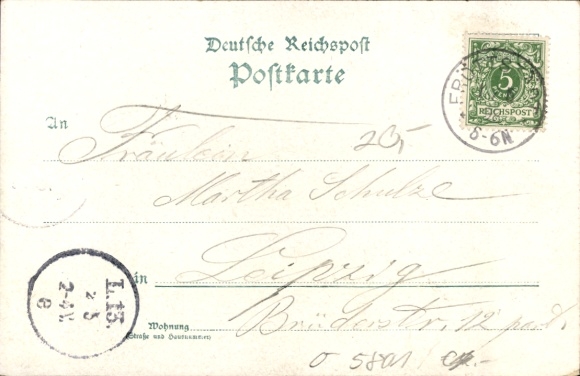 Deutsche Reichspost
Postkarte
5
REICHSPOST
5-6N
An
Fräulein
20,-
Martha Schulze
in
Leipzig
L.13.
2 5
2-4N.
Wohnung
(Straße und Hausnummer)
Brüderstr. 12 part.
O 5801